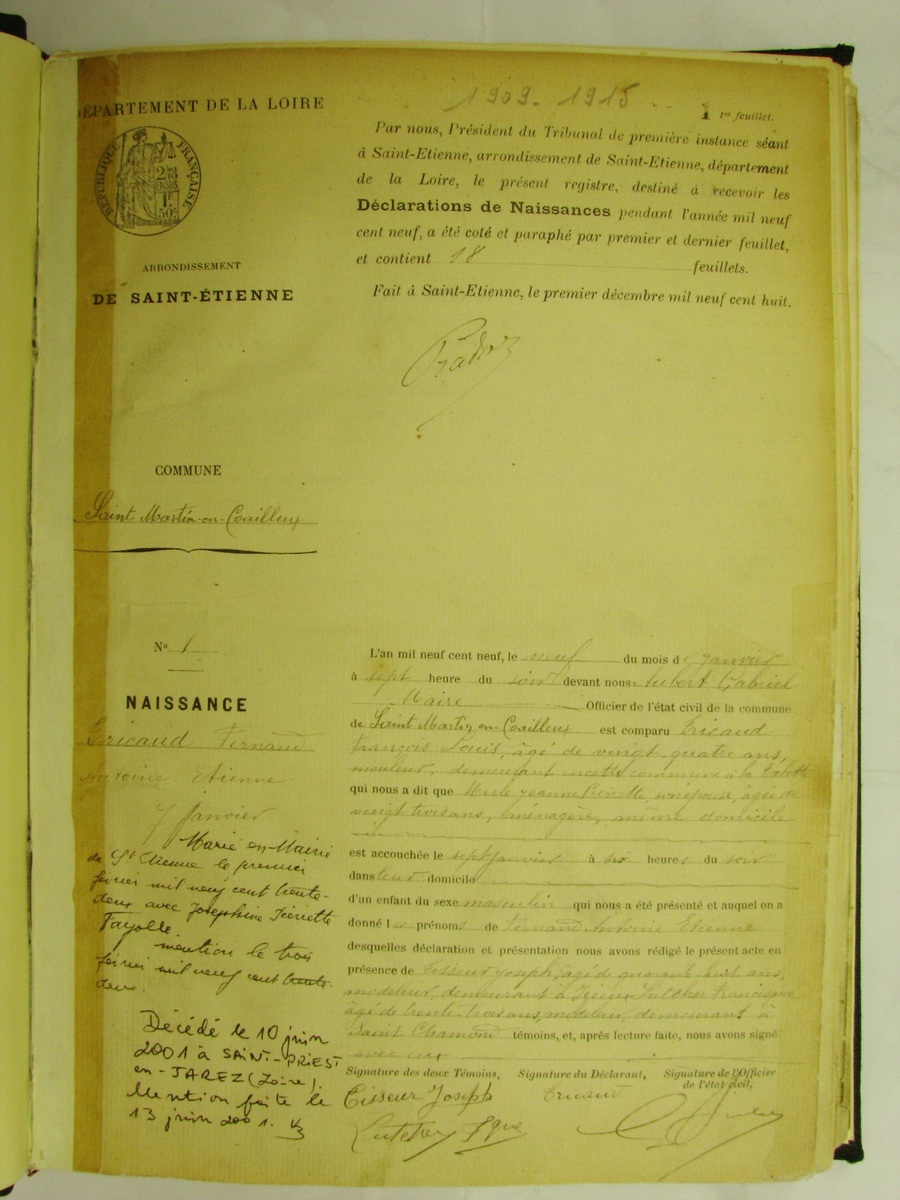 DÉPARTEMENT DE LA LOIRE
RÉPUBLIQUE FRANÇAISE
ARRONDISSEMENT
DE SAINT-ÉTIENNE
COMMUNE
Saint Martin-en-Coailleux
1909-1915
1 1er feuillet.
Par nous, Président du Tribunal de première instance séant
à Saint-Etienne, arrondissement de Saint-Etienne, département
de la Loire, le présent registre, destiné à recevoir les
Déclarations de Naissances pendant l'année mil neuf
cent neuf, a été coté et paraphé par premier et dernier feuillet,
et contient 18 feuillets.
Fait à Saint-Etienne, le premier décembre mil neuf cent huit.
N° 1
NAISSANCE
Ericaud Fernand
Antoine Etienne
7 janvier
Marié en Mairie
de St Etienne le premier
février mil neuf cent trente-
deux avec Joséphine Pierrette
Fayolle.
mention le trois
février mil neuf cent trente-
deux.
Décédé le 10 juin
2001 à SAINT-PRIEST
en-JAREZ (Loire).
Mention faite le
13 juin 2001.
L'an mil neuf cent neuf, le neuf du mois de janvier
à sept heure du soir devant nous Aubert Gabriel
Maire Officier de l'état civil de la commune
de Saint Martin en Coailleux est comparu Ericaud
François Louis, âgé de vingt quatre ans,
mouleur, demeurant en cette commune à la
qui nous a dit que Merle Jeanne Pierrette, son épouse, âgée de
vingt trois ans, ménagère, même domicile
est accouchée le sept janvier à heures du soir
dans leur domicile
d'un enfant du sexe masculin qui nous a été présenté et auquel on a
donné les prénoms de Fernand Antoine Etienne
desquelles déclaration et présentation nous avons rédigé le présent acte en
présence de Tisseur Joseph, âgé de quarante huit ans,
modeleur, demeurant à Izieux Lutcher Francisque
âgé de trente-trois ans, modeleur, demeurant à
Saint Chamond témoins, et, après lecture faite, nous avons signé
avec eux
Signature des deux Témoins, Signature du Déclarant, Signature de l'Officier
de l'état civil,
Tisseur Joseph Ericaud
Lutcher Fque